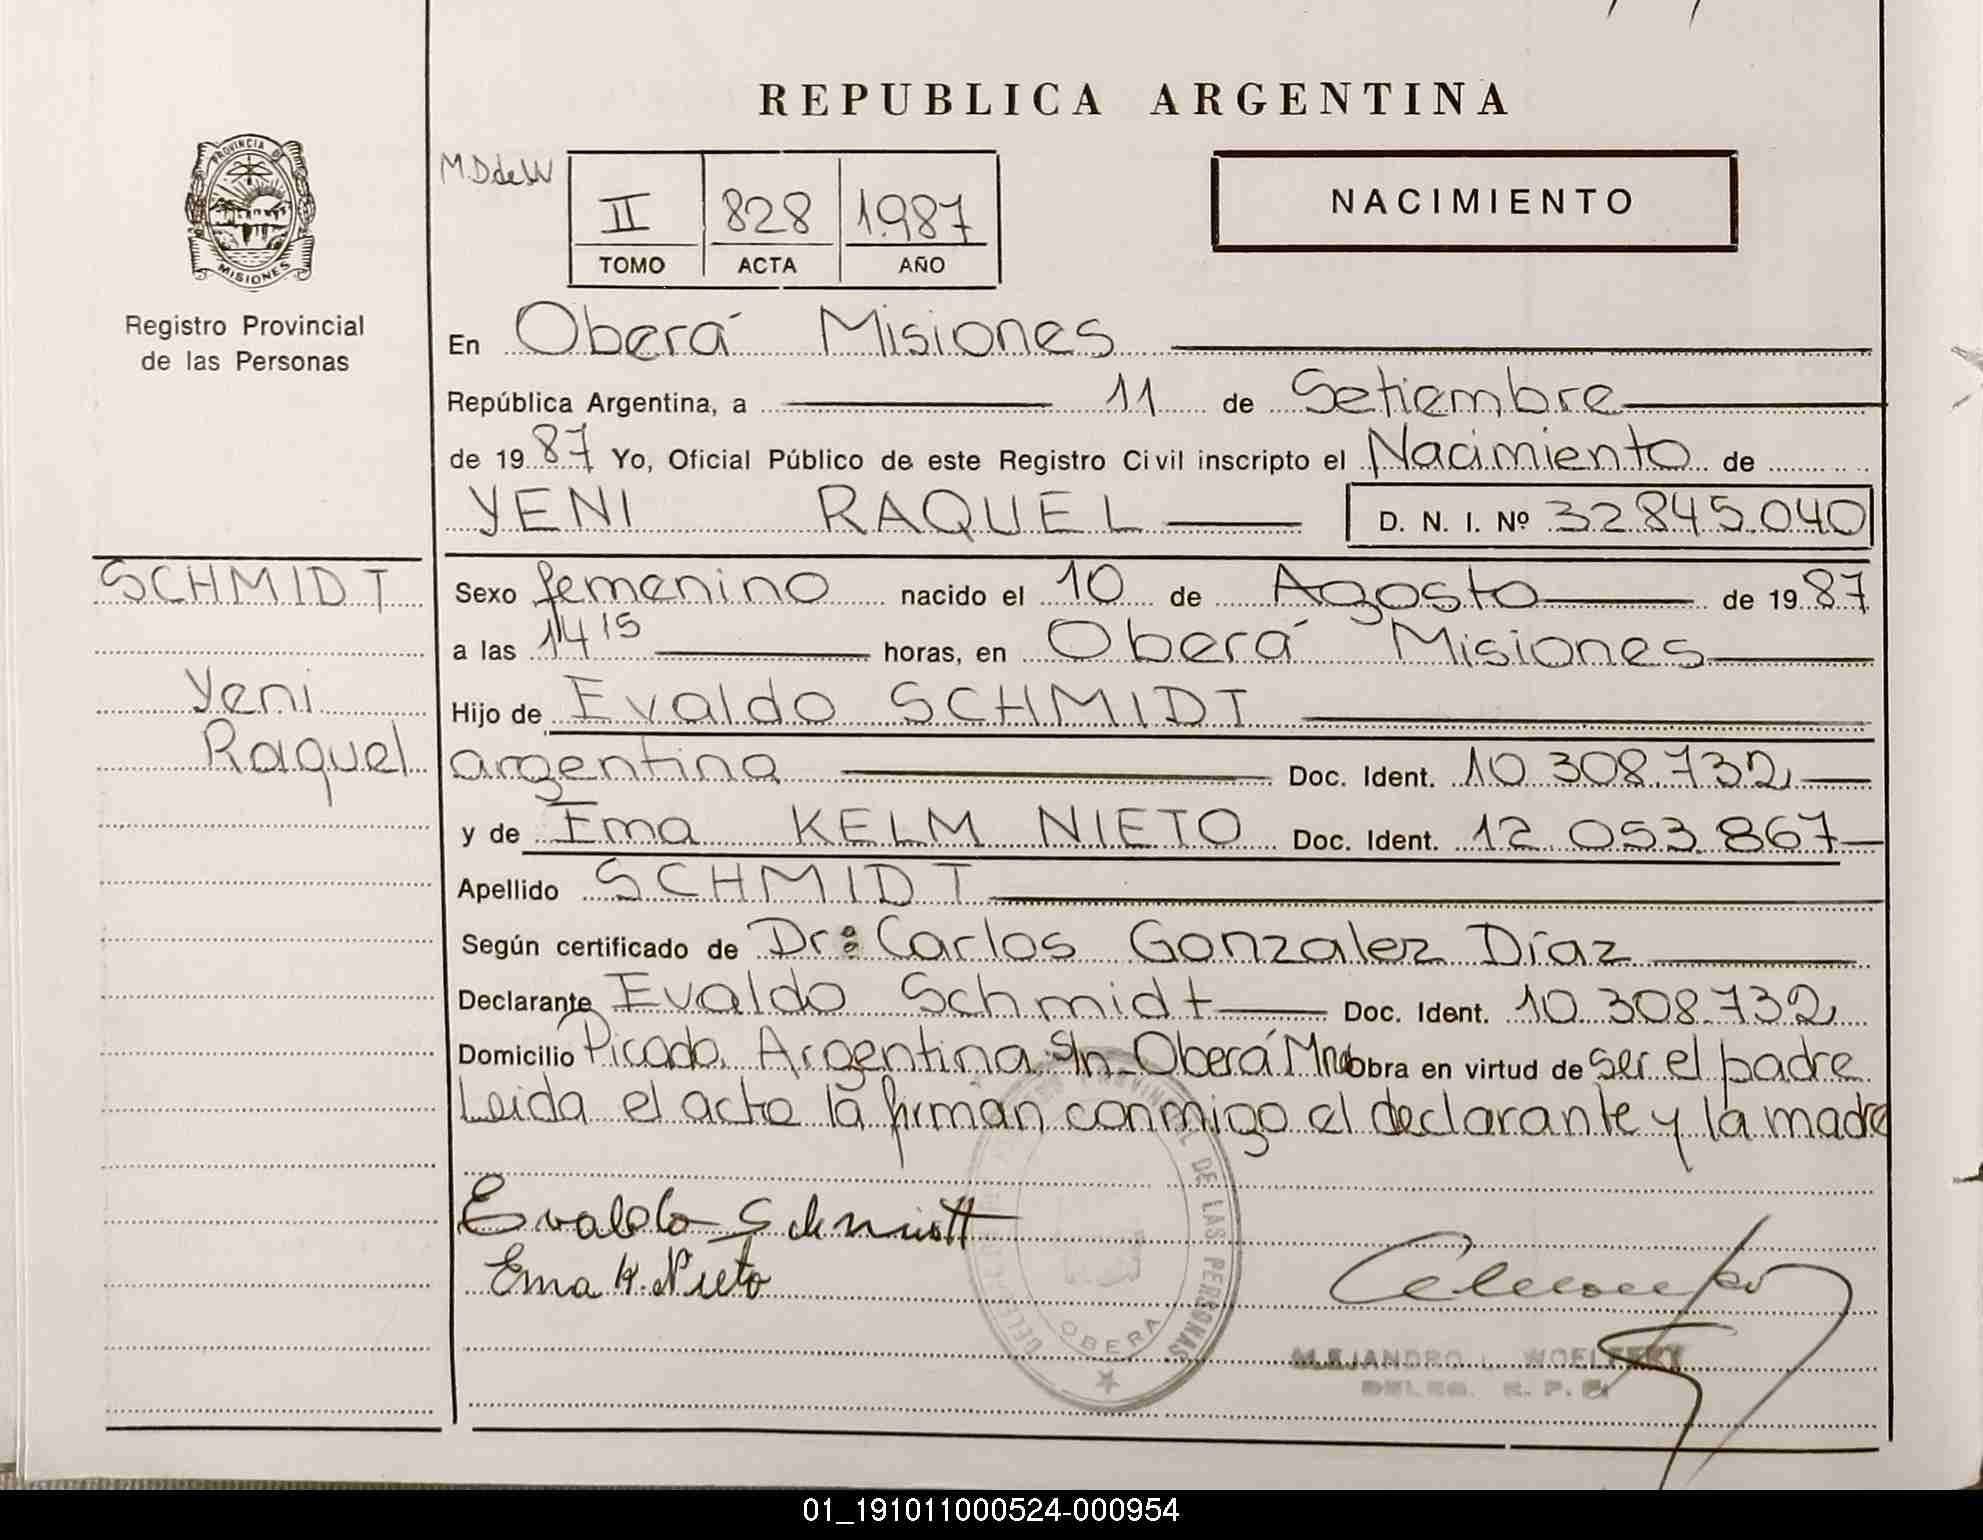 REPUBLICA ARGENTINA
PROVINCIA DE
MISIONES
Registro Provincial
de las Personas
M.D de W
II 828 1.987
TOMO ACTA AÑO
NACIMIENTO
En Oberá Misiones
República Argentina, a 11 de Setiembre
de 19 87 Yo, Oficial Público de este Registro Civil inscripto el Nacimiento de
YENI RAQUEL D. N. I. Nº 32.845.040
SCHMIDT
Yeni
Raquel
Sexo femenino nacido el 10 de Agosto de 19 87
a las 14 15 horas, en Oberá Misiones
Hijo de Evaldo SCHMIDT
argentina Doc. Ident. 10.308.732
y de Ema KELM NIETO Doc. Ident. 12.053.867
Apellido SCHMIDT
Según certificado de Dr: Carlos Gonzalez Díaz
Declarante Evaldo Schmidt Doc. Ident. 10.308.732
Domicilio Picada Argentina S/n_Oberá Mnes Obra en virtud de ser el padre
Leida el acta la firman conmigo el declarante y la madre
Evaldo Schmidt
Ema K. Nieto
DE LAS PERSONAS
OBERA
ALEJANDRO L. WOELFERT
DELEG. R. P. P.
01_191011000524-000954